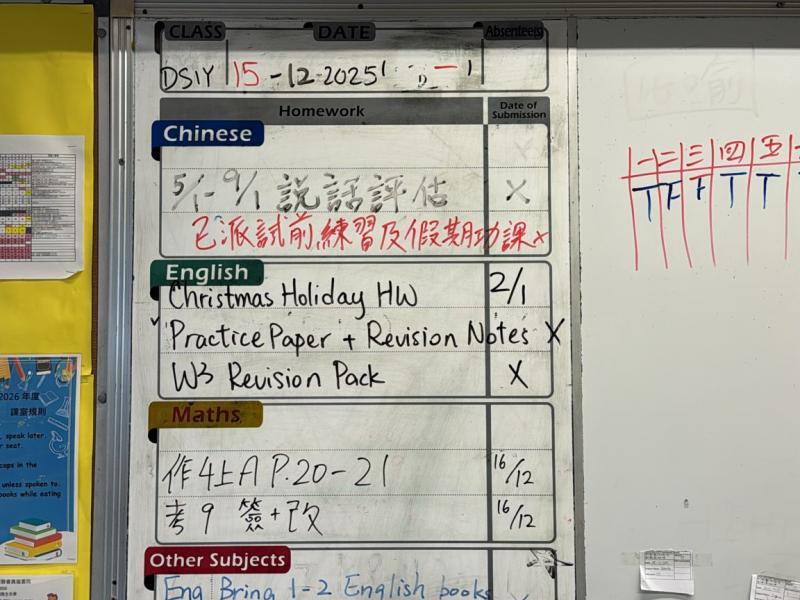 CLASS DATE Absentee(s)
15-12-2025
Homework Date of Submission
Chinese
5/1-9/1 說話評估 X
已派試前練習及假期功課 X
English
Christmas Holiday HW 2/1
Practice Paper + Revision Notes X
W3 Revision Pack X
Maths
作4上A P.20-21 16/12
考9 簽+改 16/12
Other Subjects
Eng Bring 1-2 English books
一 二 三 四 五
T F F T T
2026 年度
課室規則
speak later.
seat.
caps in the
unless spoken to.
books while eating